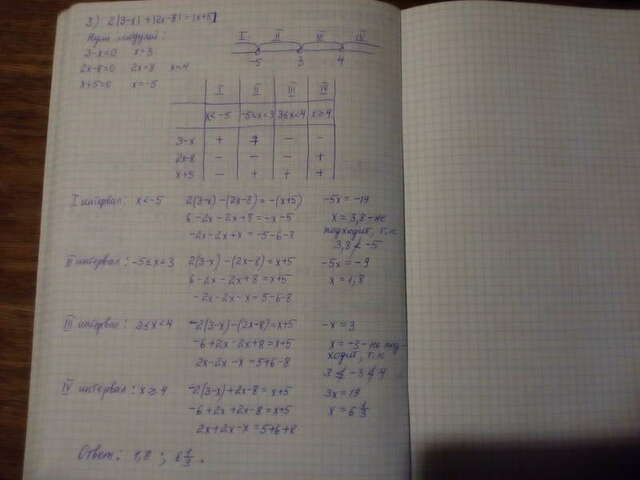 3) 2|3-x| + |2x-8| = |x+5|
Нули модулей:
3-x=0 x=3
2x-8=0 2x=8 x=4
x+5=0 x=-5
I II III IV
-5 3 4
I II III IV
x<-5 -5≤x<3 3≤x<4 x≥4
3-x + + - -
2x-8 - - - +
x+5 - + + +
I интервал: x<-5 2(3-x)-(2x-8)=-(x+5) -5x=-19
6-2x-2x+8=-x-5 x=3,8-не
-2x-2x+x=-5-6-8 подходит, т.к.
3,8≮-5
II интервал: -5≤x<3 2(3-x)-(2x-8)=x+5 -5x=-9
6-2x-2x+8=x+5 x=1,8
-2x-2x-x=5-6-8
III интервал: 3≤x<4 -2(3-x)-(2x-8)=x+5 -x=3
-6+2x-2x+8=x+5 x=-3-не под-
2x-2x-x=5+6-8 ходит, т.к.
3≰-3≮4
IV интервал: x≥4 -2(3-x)+2x-8=x+5 3x=19
-6+2x+2x-8=x+5 x=6 1/3
2x+2x-x=5+6+8
Ответ: 1,8; 6 1/3.